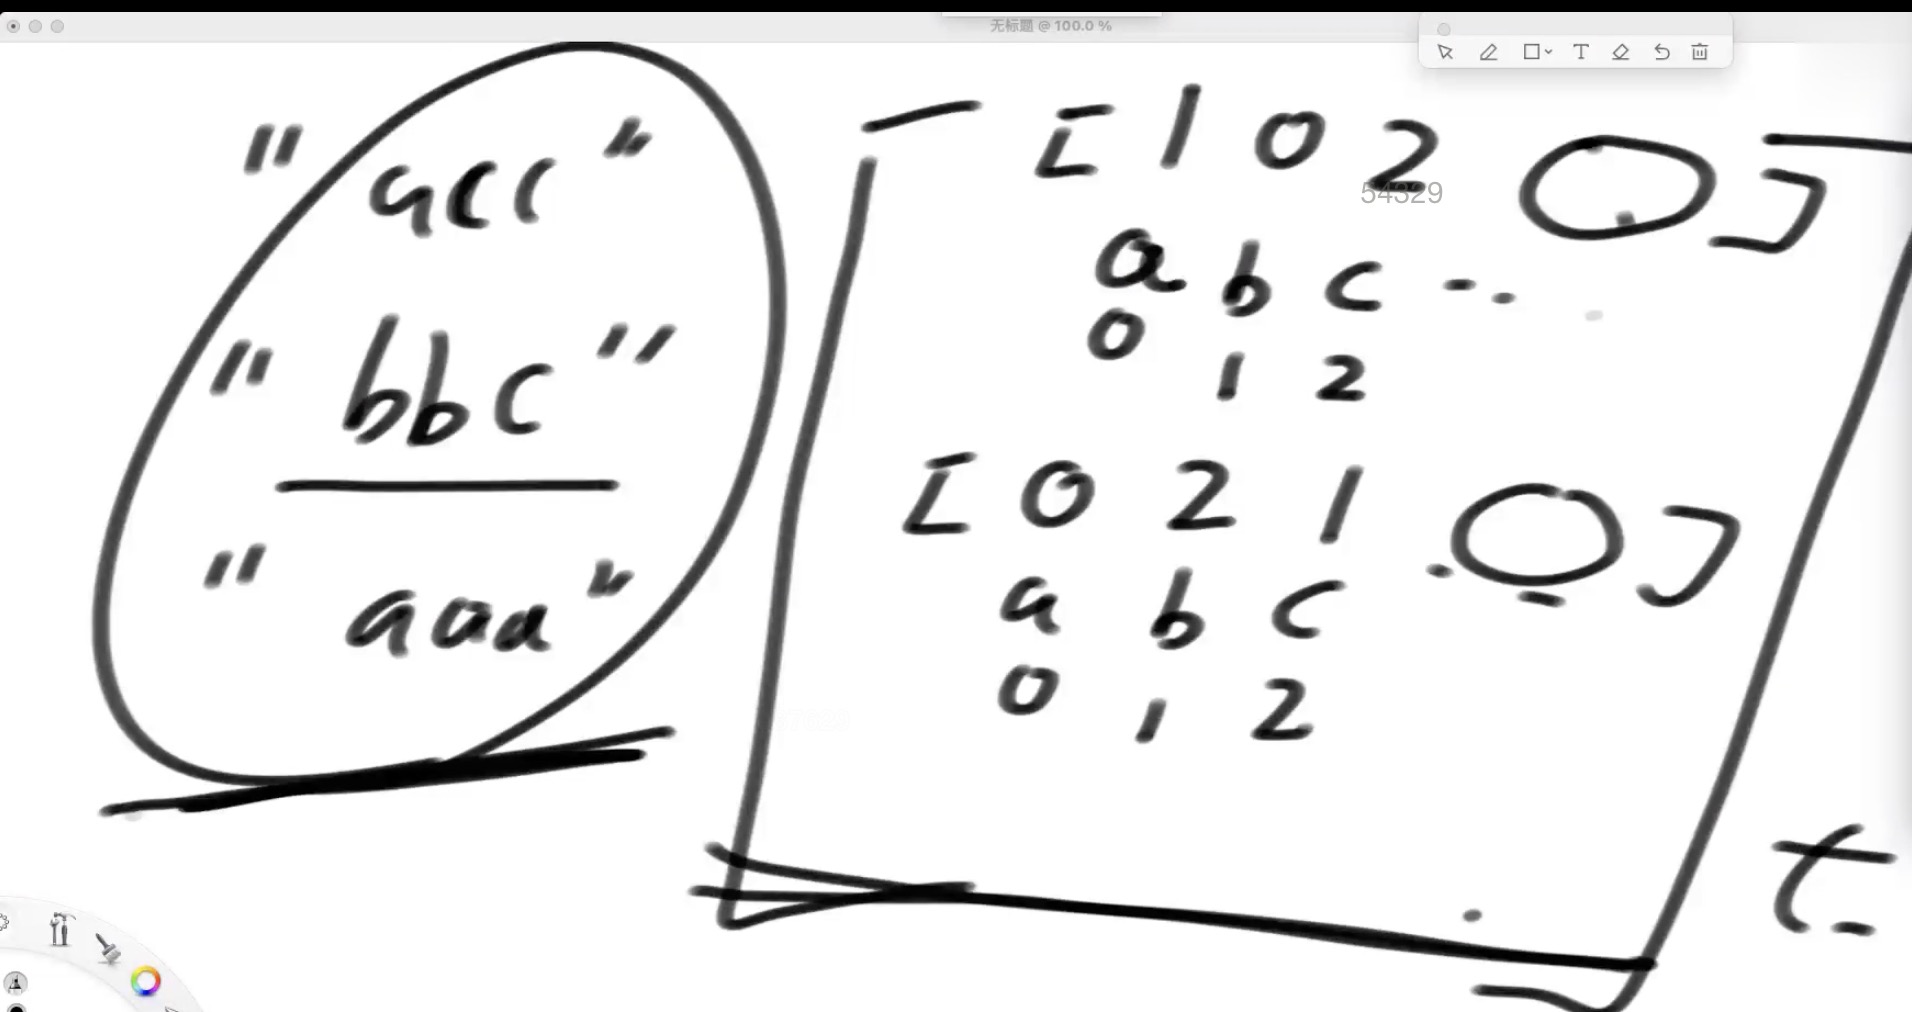 无标题 @ 100.0 %
"acc"
"bbc"
"aaa"
[ 1 0 2 ○ ]
54329
a b c ...
0 1 2
[ 0 2 1 ○ ]
a b c
0 1 2
t